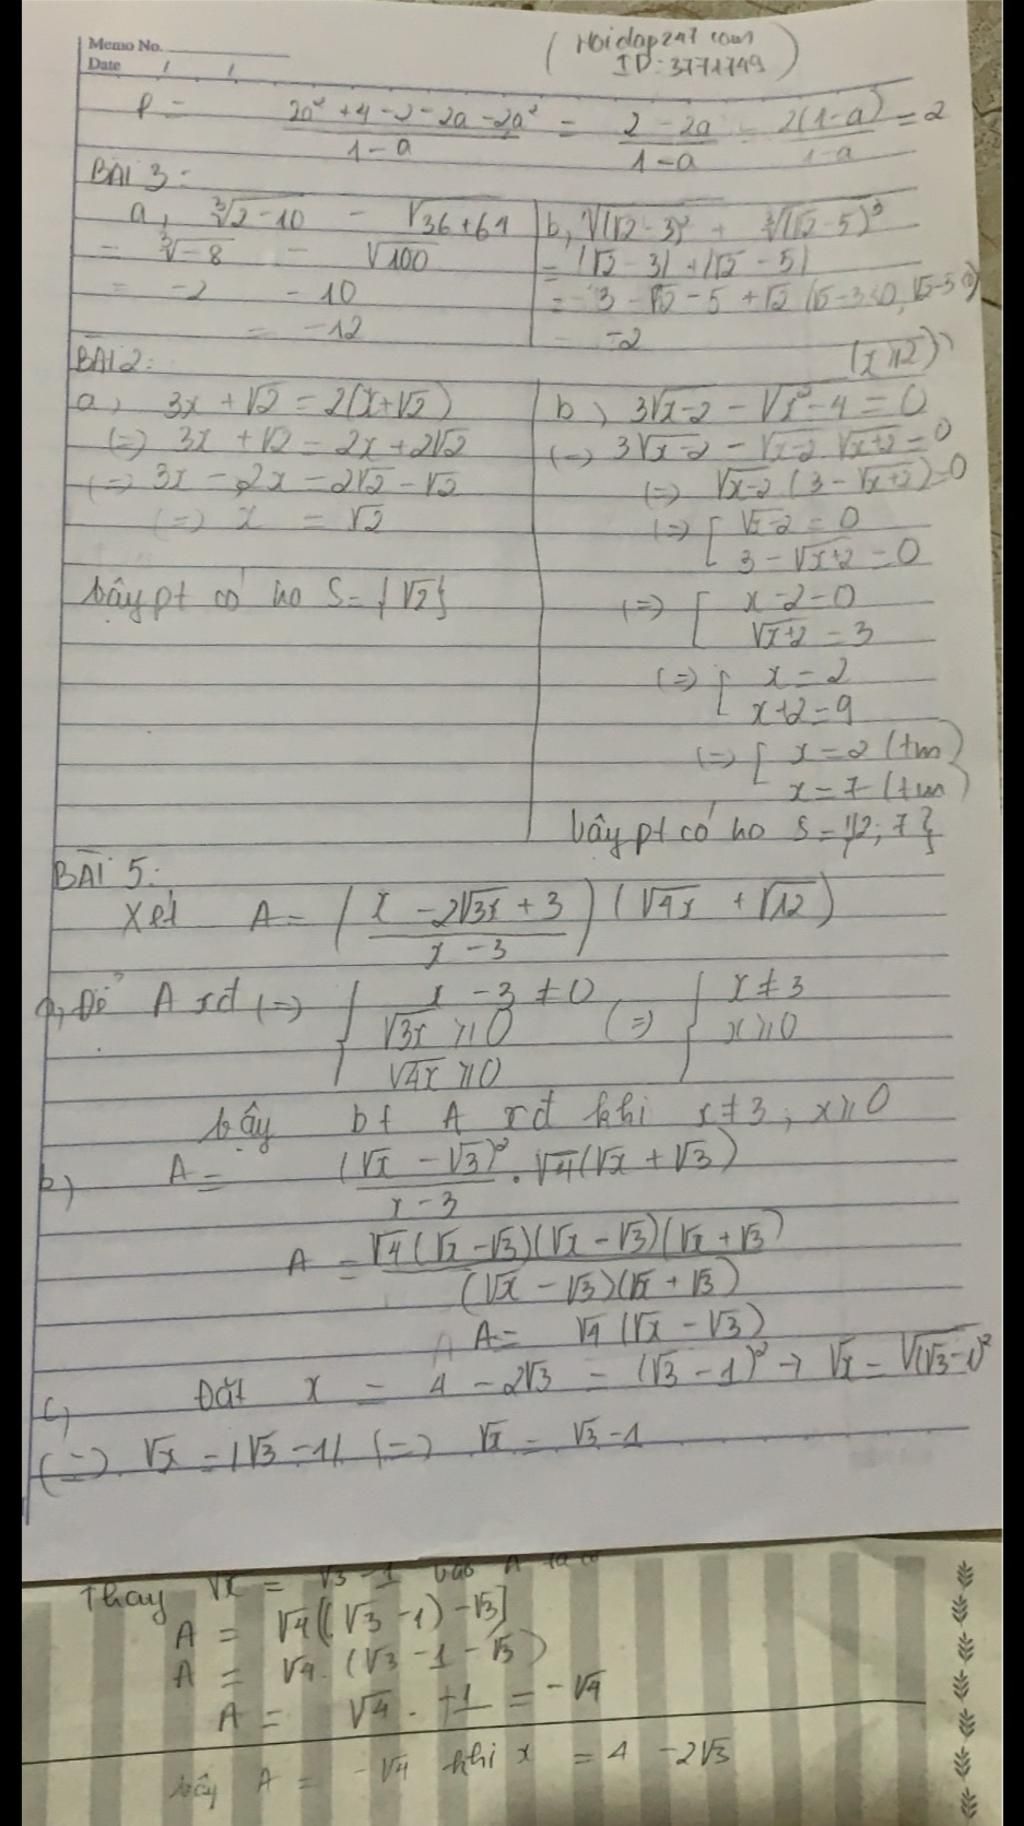 Memo No.
Date / /
(Hoidap247.com
ID: 3771749)
P = (2a² + 4 - 2 - 2a - 2a²)/(1 - a) = (2 - 2a)/(1 - a) = 2(1 - a)/(1 - a) = 2
BÀI 3:
a, ∛(2-10) - √(36+64)
= ∛-8 - √100
= -2 - 10
= -12
b, √(√2-3)² + ∛(√2-5)³
= |√2-3| + |√2-5|
= 3 - √2 - 5 + √2
= -2
BÀI 2:
a, 3x + √2 = 2(x+√2)
(=) 3x + √2 = 2x + 2√2
(=) 3x - 2x = 2√2 - √2
(=) x = √2
Vậy pt có no S = {√2}
(x ⩾ 2)
b, 3√(x-2) - √(x²-4) = 0
(=) 3√(x-2) - √(x-2) √(x+2) = 0
(=) √(x-2) (3 - √(x+2)) = 0
(=) [ √(x-2) = 0
3 - √(x+2) = 0
(=) [ x - 2 = 0
√(x+2) = 3
(=) [ x = 2
x+2 = 9
(=) [ x = 2 (tm)
x = 7 (tm)
Vậy pt có no S = {2; 7}
BÀI 5:
Xét A = ((x - 2√3x + 3)/(x - 3)) (√4x + √12)
a, Để A xđ (=) { x - 3 ≠ 0 (=) { x ≠ 3
√3x ⩾ 0 x ⩾ 0
√4x ⩾ 0
Vậy bt A xđ khi x ≠ 3; x ⩾ 0
b) A = (√x - √3)²/(x - 3) . √4(√x + √3)
A = √4(√x - √3)(√x - √3)(√x + √3)/((√x - √3)(√x + √3))
A = √4 (√x - √3)
c, Đặt x = 4 - 2√3 = (√3 - 1)² → √x = √(√3-1)²
(=) √x = |√3 - 1| (=) √x = √3 - 1
Thay √x = √3 - 1 vào A ta có
A = √4[(√3 - 1) - √3]
A = √4. (√3 - 1 - √3)
A = √4 . +1 = -√4
Vậy A = -√4 khi x = 4 - 2√3